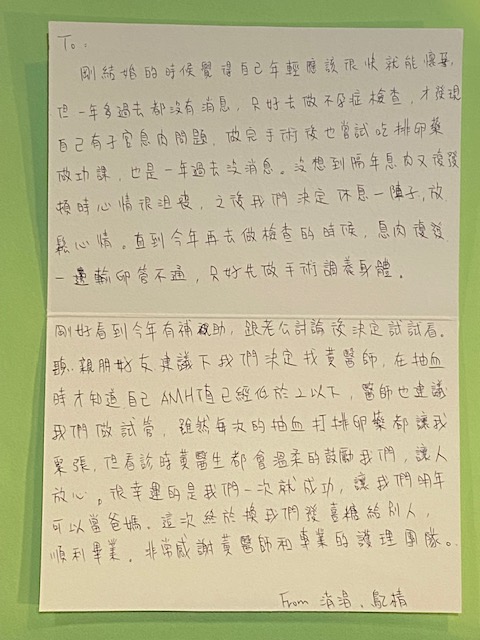 To:
剛結婚的時候覺得自己年輕應該很快就能懷孕,
但一年多過去都沒有消息, 只好去做不孕症檢查, 才發現
自己有子宮息肉問題, 做完手術後也嘗試吃排卵藥
做功課, 也是一年過去沒消息。沒想到隔年息肉又復發
頓時心情很沮喪, 之後我們決定休息一陣子, 放
鬆心情。直到今年再去做檢查的時候, 息肉復發
一邊輸卵管不通, 只好先做手術調養身體。
剛好看到今年有補助, 跟老公討論後決定試試看。
聽親朋好友建議下我們決定找黃醫師, 在抽血
時才知道自己AMH值已經低於2以下, 醫師也建議
我們做試管, 雖然每次的抽血打排卵藥都讓我
緊張, 但看診時黃醫生都會溫柔的鼓勵我們, 讓人
放心。很幸運的是我們一次就成功, 讓我們明年
可以當爸媽。這次終於換我們發喜糖給別人,
順利畢業。非常感謝黃醫師和專業的護理團隊。
From